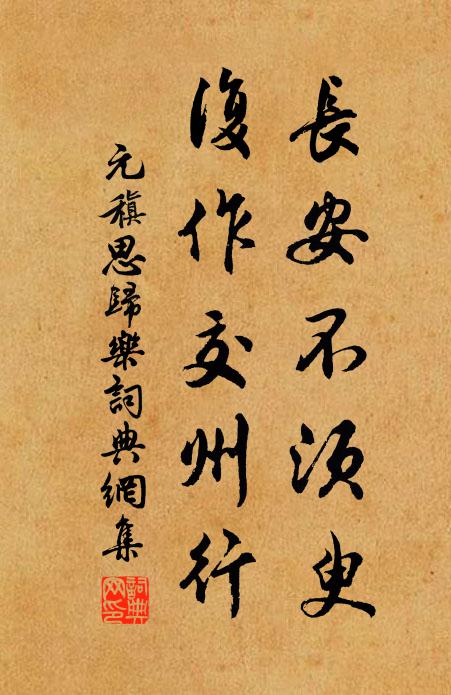 長安不須臾
復作交州行
元稹思歸樂詞典網集
詞典
網印